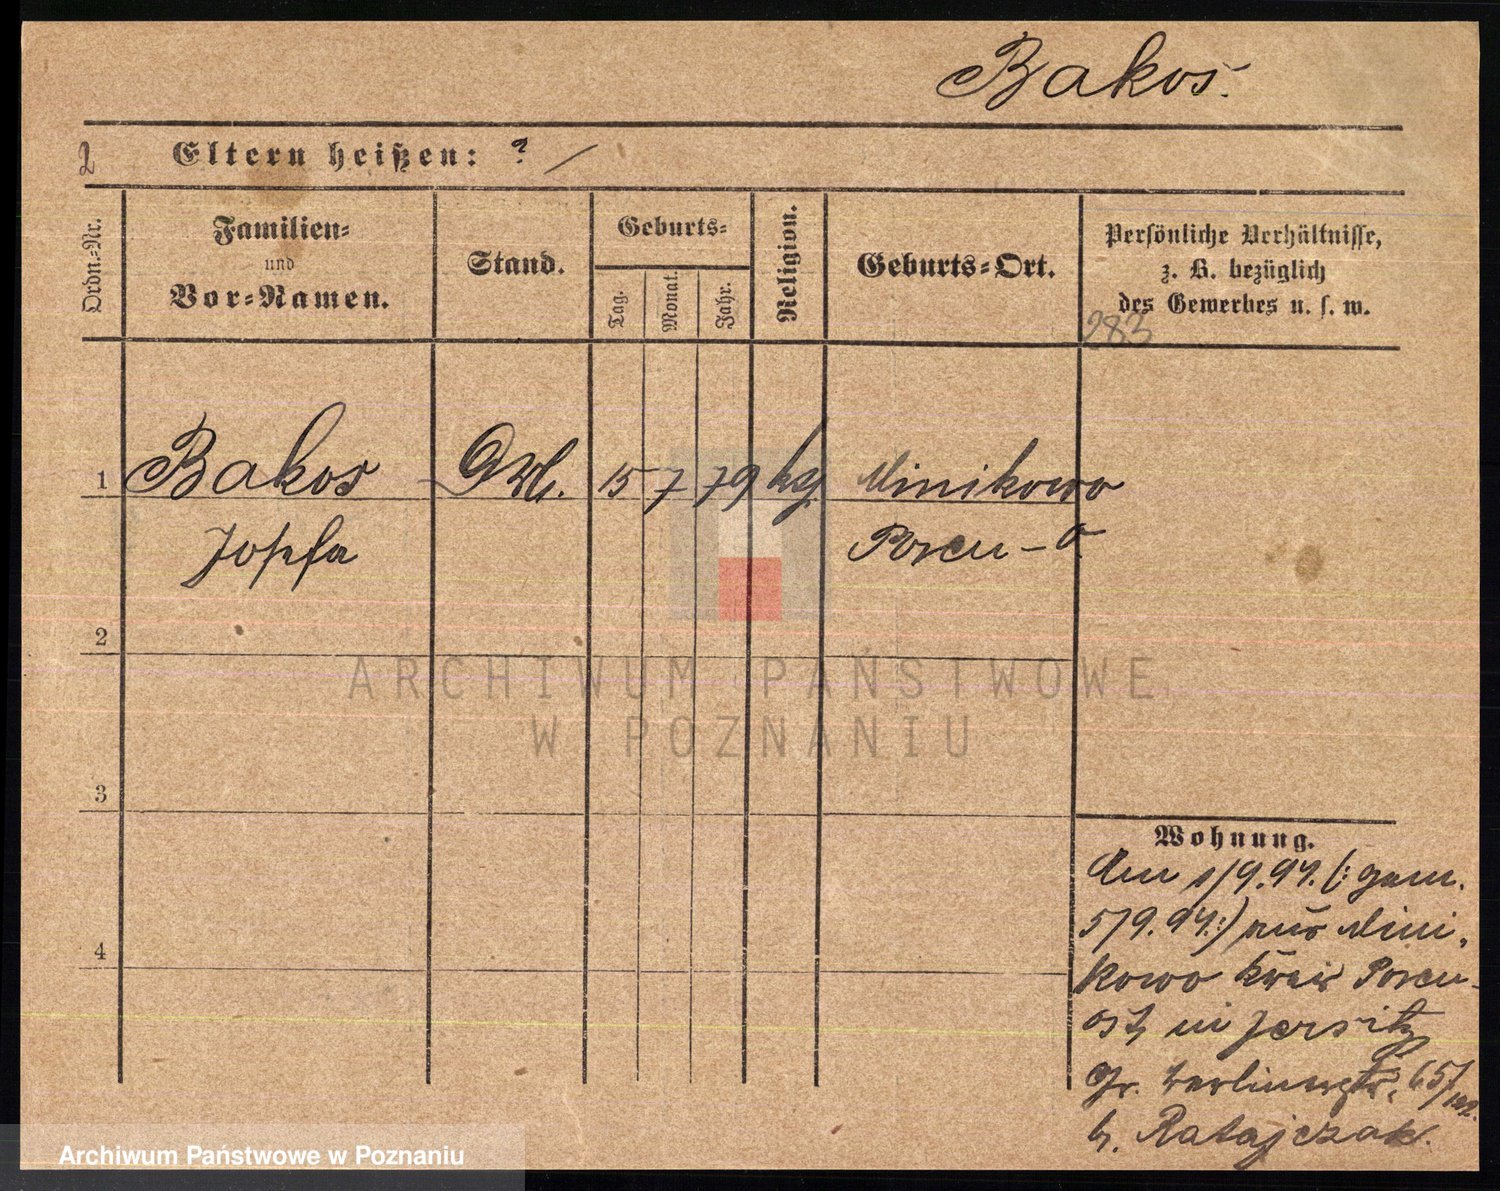 Bakos.
2 Eltern heißen: ? /
Ordn.-Nr.
Familien-
und
Vor-Namen.
Stand.
Geburts-
Tag.
Monat.
Jahr.
Religion.
Geburts-Ort.
Persönliche Verhältnisse,
z. B. bezüglich
des Gewerbes u. s. w.
283
1 Bakos 15 7 79 Minikowo
Josefa Posen - O
2
3
4
Wohnung.
Am 1/9.94. (: gem.
5/9.94:) aus Mini-
kowo Kreis Posen-
ost, in Jersitz
Gr. Berlinerstr. 65/
b. Ratajczak.
ARCHIWUM PAŃSTWOWE
W POZNANIU
Archiwum Państwowe w Poznaniu